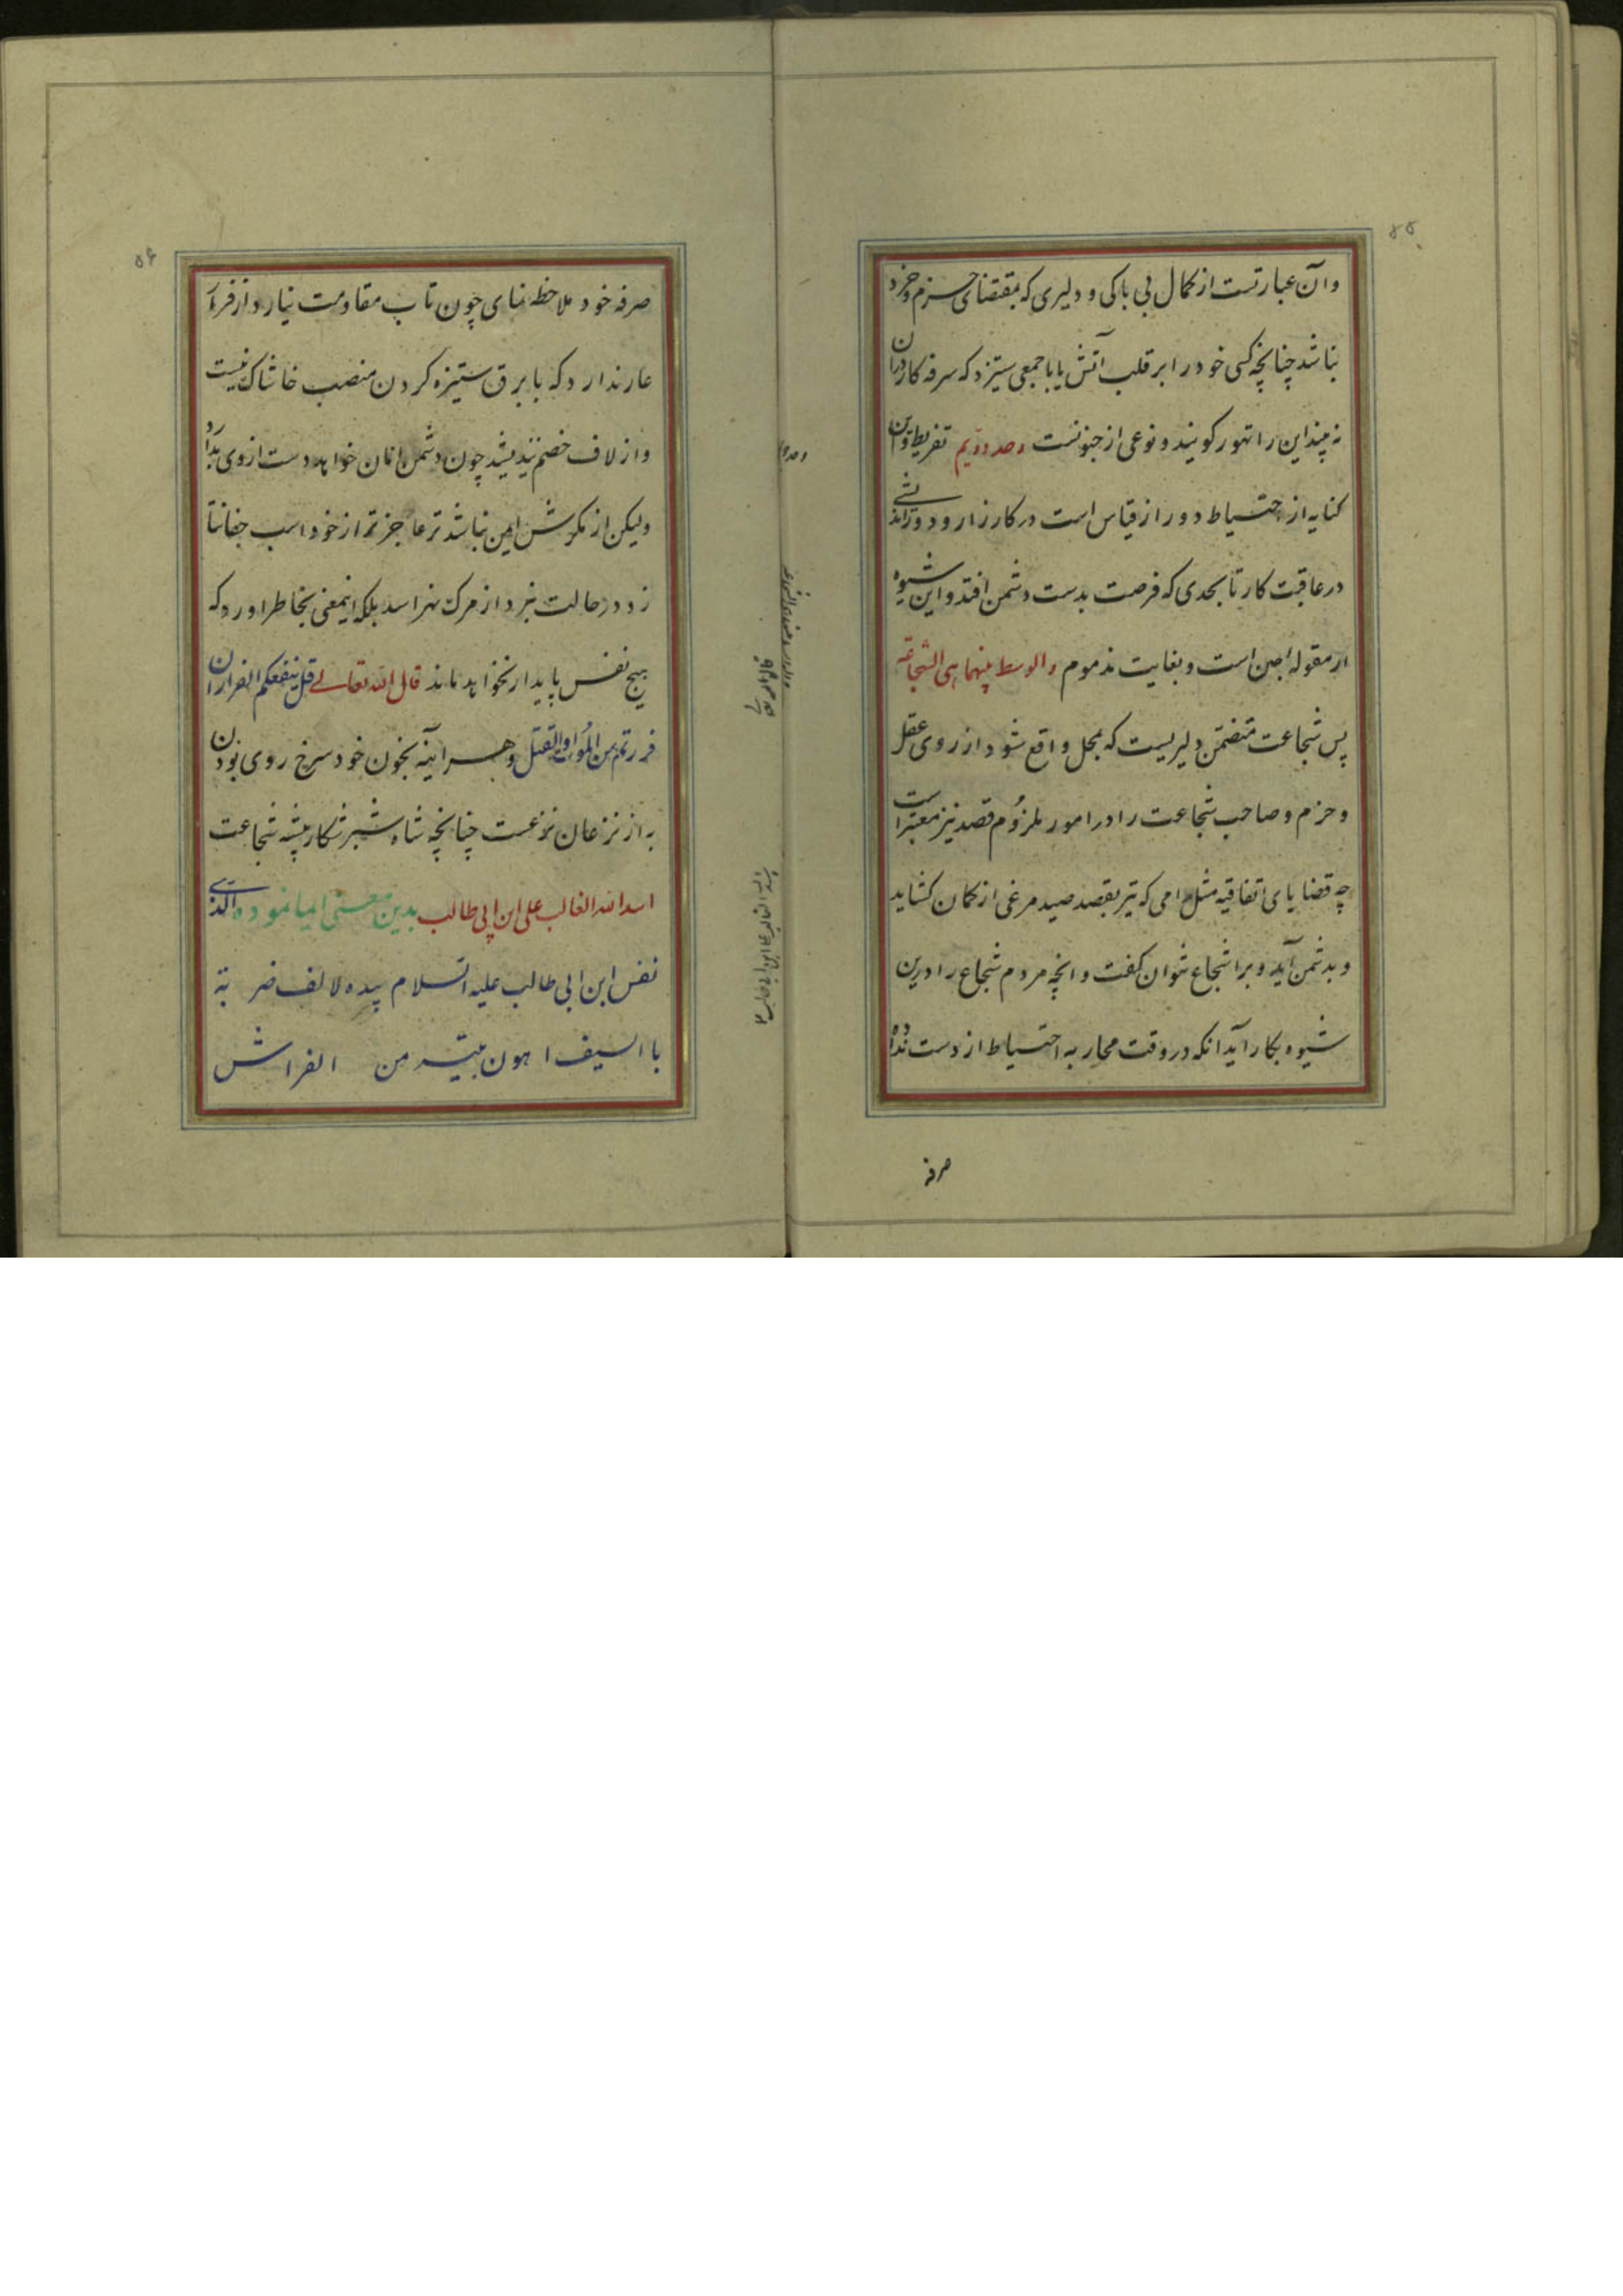 ۵۵
وآن عبارتست از کمال بی باکی و دلیری که بمقتضای حزم و خرد
نباشد چنانچه کسی خود را بر قلب آتش یا با جمعی ستیزد که سرفه کار در آن
نه بیند این را تهور کویند و نوعی از جنونست وحد دویم تفریط و آن
کنایه از احتیاط دور از قیاس است در کارزار و دور اندیشی
در عاقبت کار تا بحدی که فرصت بدست دشمن افتد و این شیوه
از مقوله جبن است و بغایت مذموم والوسط بینهما هی الشجاعة
پس شجاعت متضمن دلیریست که بمحل واقع شود از روی عقل
و حزم و صاحب شجاعت را در امور ملزوم قصد نیز معتبر است
چه قضایای اتفاقیه مثل رامی که تیر بقصد صید مرغی از کمان کشاید
و بدشمن آید ویرا شجاع نتوان کفت و انچه مردم شجاع را درین
شیوه بکار آید انکه در وقت محاربه احتیاط از دست نداده
صرفه
۵۶
صرفه خود ملاحظه نمای چون تاب مقاومت نیارد از فرار
عار ندارد که با برق ستیزه کردن منصب خاشاک نیست
و از لاف خصم نیندیشد چون دشمن امان خواهد دست از وی بدارد
ولیکن از مکرش ایمن نباشد تر عاجز تر از خود اسب جفا نتا
زد و در حالت نبرد از مرک نهراسد بلکه اینمعنی بخاطر اورد که
هیچ نفس پایدار نخواهد ماند قال الله تعالی قل ینفعکم الفرار ان
فررتم من الموت او القتل و هر اینه بخون خود سرخ روی بودن
به از نزعان نزعست چنانچه شاه شیر شکار بیشه شجاعت
اسد الله الغالب علی ابن ابی طالب بدین معنی ایما نموده الذی
نفس ابن ابی طالب علیه السلام بیده لالف ضربة
باالسیف اهون میتة من الفراش